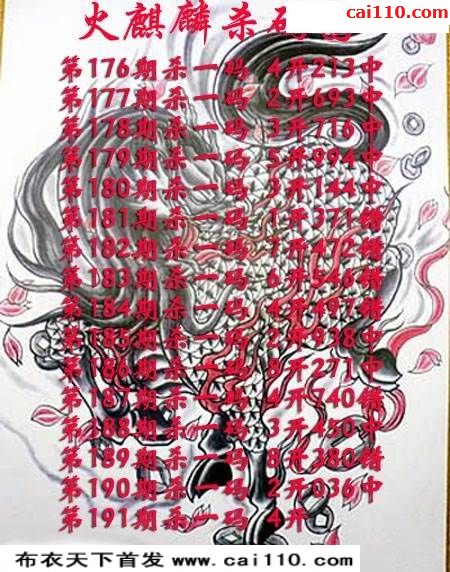 www.cai110.com
cai110.com
火麒麟杀码
第176期杀一码 4开213中
第177期杀一码 2开693中
第178期杀一码 3开716中
第179期杀一码 5开994中
第180期杀一码 3开144中
第181期杀一码 1开371错
第182期杀一码 7开472错
第183期杀一码 6开546错
第184期杀一码 4开497错
第185期杀一码 2开938中
第186期杀一码 8开271中
第187期杀一码 4开740错
第188期杀一码 3开450中
第189期杀一码 8开380错
第190期杀一码 2开036中
第191期杀一码 4开
布衣天下首发 www.cai110.com